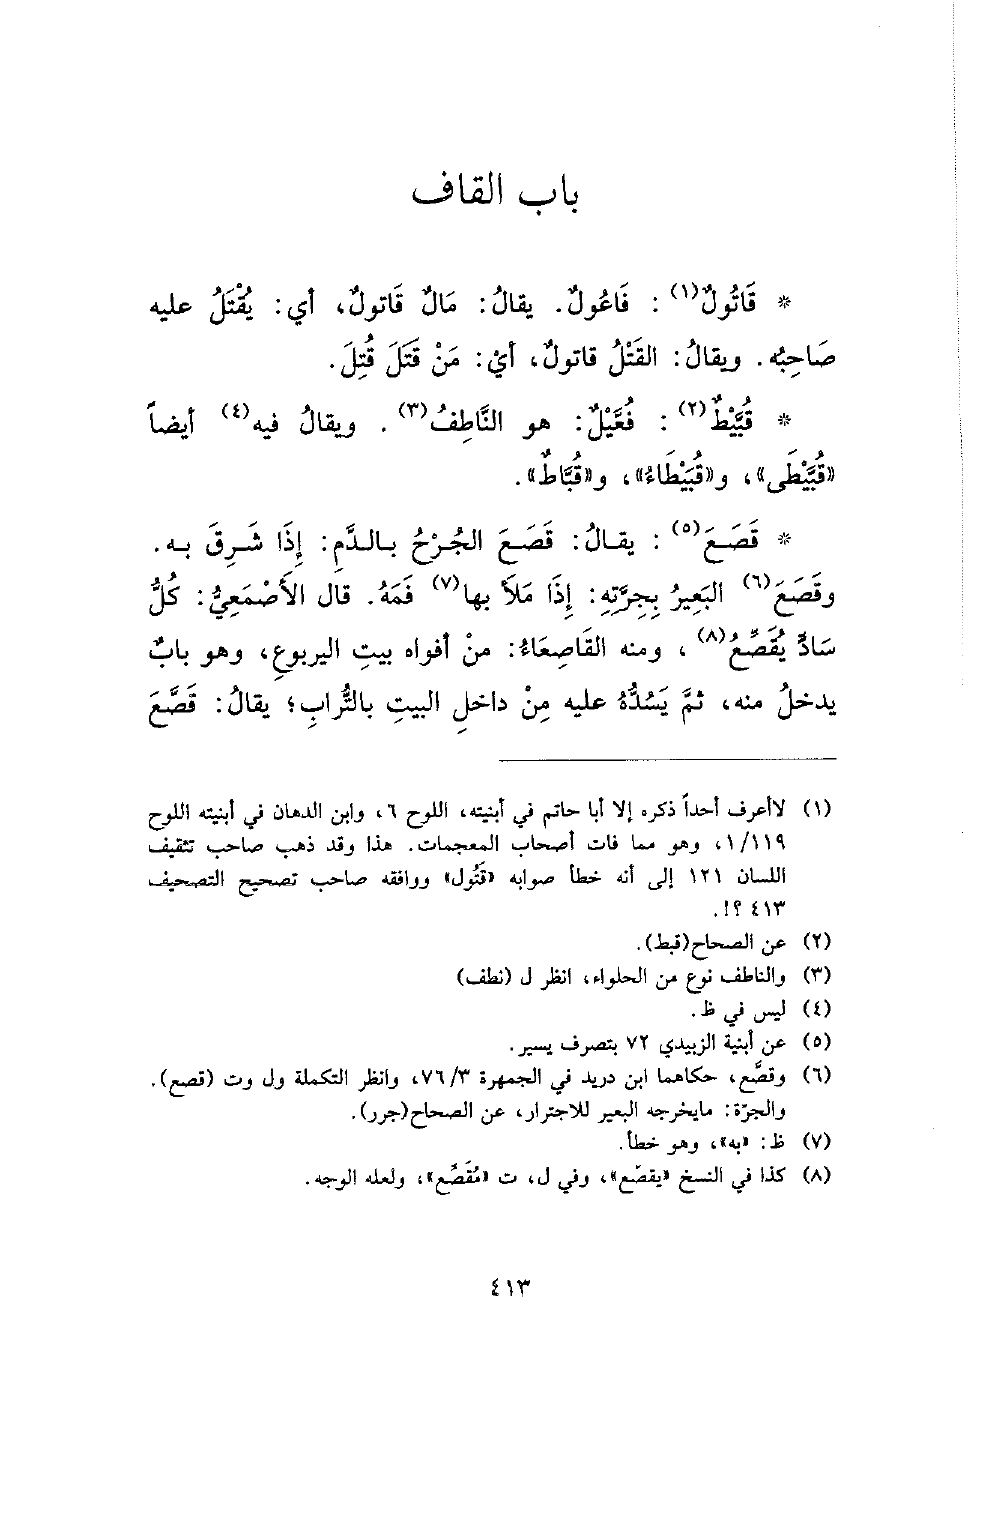 باب القاف
* قَاتُولٌ(١) : فَاعُولٌ. يقالُ: مَالٌ قَاتولٌ، أي: يُقْتَلُ عليه
صَاحِبُه. ويقالُ: القَتْلُ قاتولٌ، أيْ: مَنْ قَتَلَ قُتِلَ.
* قُبَّيْطٌ(٢) : فُعَّيْلٌ: هو النَّاطِفُ(٣) . ويقالُ فيه(٤) أيضاً
«قُبَّيْطَى»، و«قُبَيْطَاءُ»، و«قُبَّاطٌ».
* قَصَعَ(٥) : يقالُ: قَصَعَ الجُرْحُ بالدَّمِ: إِذَا شَرِقَ به.
وقَصَعَ(٦) البَعِيرُ بِجِرَّتِهِ: إِذَا مَلَأَ بها(٧) فَمَهُ. قال الأَصْمَعِيُّ: كُلُّ
سَادٍّ يُقَصِّعُ(٨) ، ومنه القَاصِعَاءُ: منْ أفواه بيتِ اليربوعِ، وهو بابٌ
يدخلُ منه، ثمَّ يَسُدُّهُ عليه مِنْ داخلِ البيتِ بالتُّرابِ؛ يقالُ: قَصَّعَ
(١) لاأعرف أحداً ذكره إلا أبا حاتم في أبنيته، اللوح ٦، وابن الدهان في أبنيته اللوح
١/١١٩، وهو مما فات أصحاب المعجمات. هذا وقد ذهب صاحب تثقيف
اللسان ١٢١ إلى أنه خطأ صوابه «قَتُول» ووافقه صاحب تصحيح التصحيف
٤١٣ ؟!.
(٢) عن الصحاح(قبط).
(٣) والناطف نوع من الحلواء، انظر ل (نطف)
(٤) ليس في ظ.
(٥) عن أبنية الزبيدي ٧٢ بتصرف يسير.
(٦) وقصَّع، حكاهما ابن دريد في الجمهرة ٧٦/٣، وانظر التكملة ول وت (قصع).
والجرّة: مايخرجه البعير للاجترار، عن الصحاح(جرر).
(٧) ظ: «به»، وهو خطأ.
(٨) كذا في النسخ «يقصّع»، وفي ل، ت «مُقَصِّع»، ولعله الوجه.
٤١٣